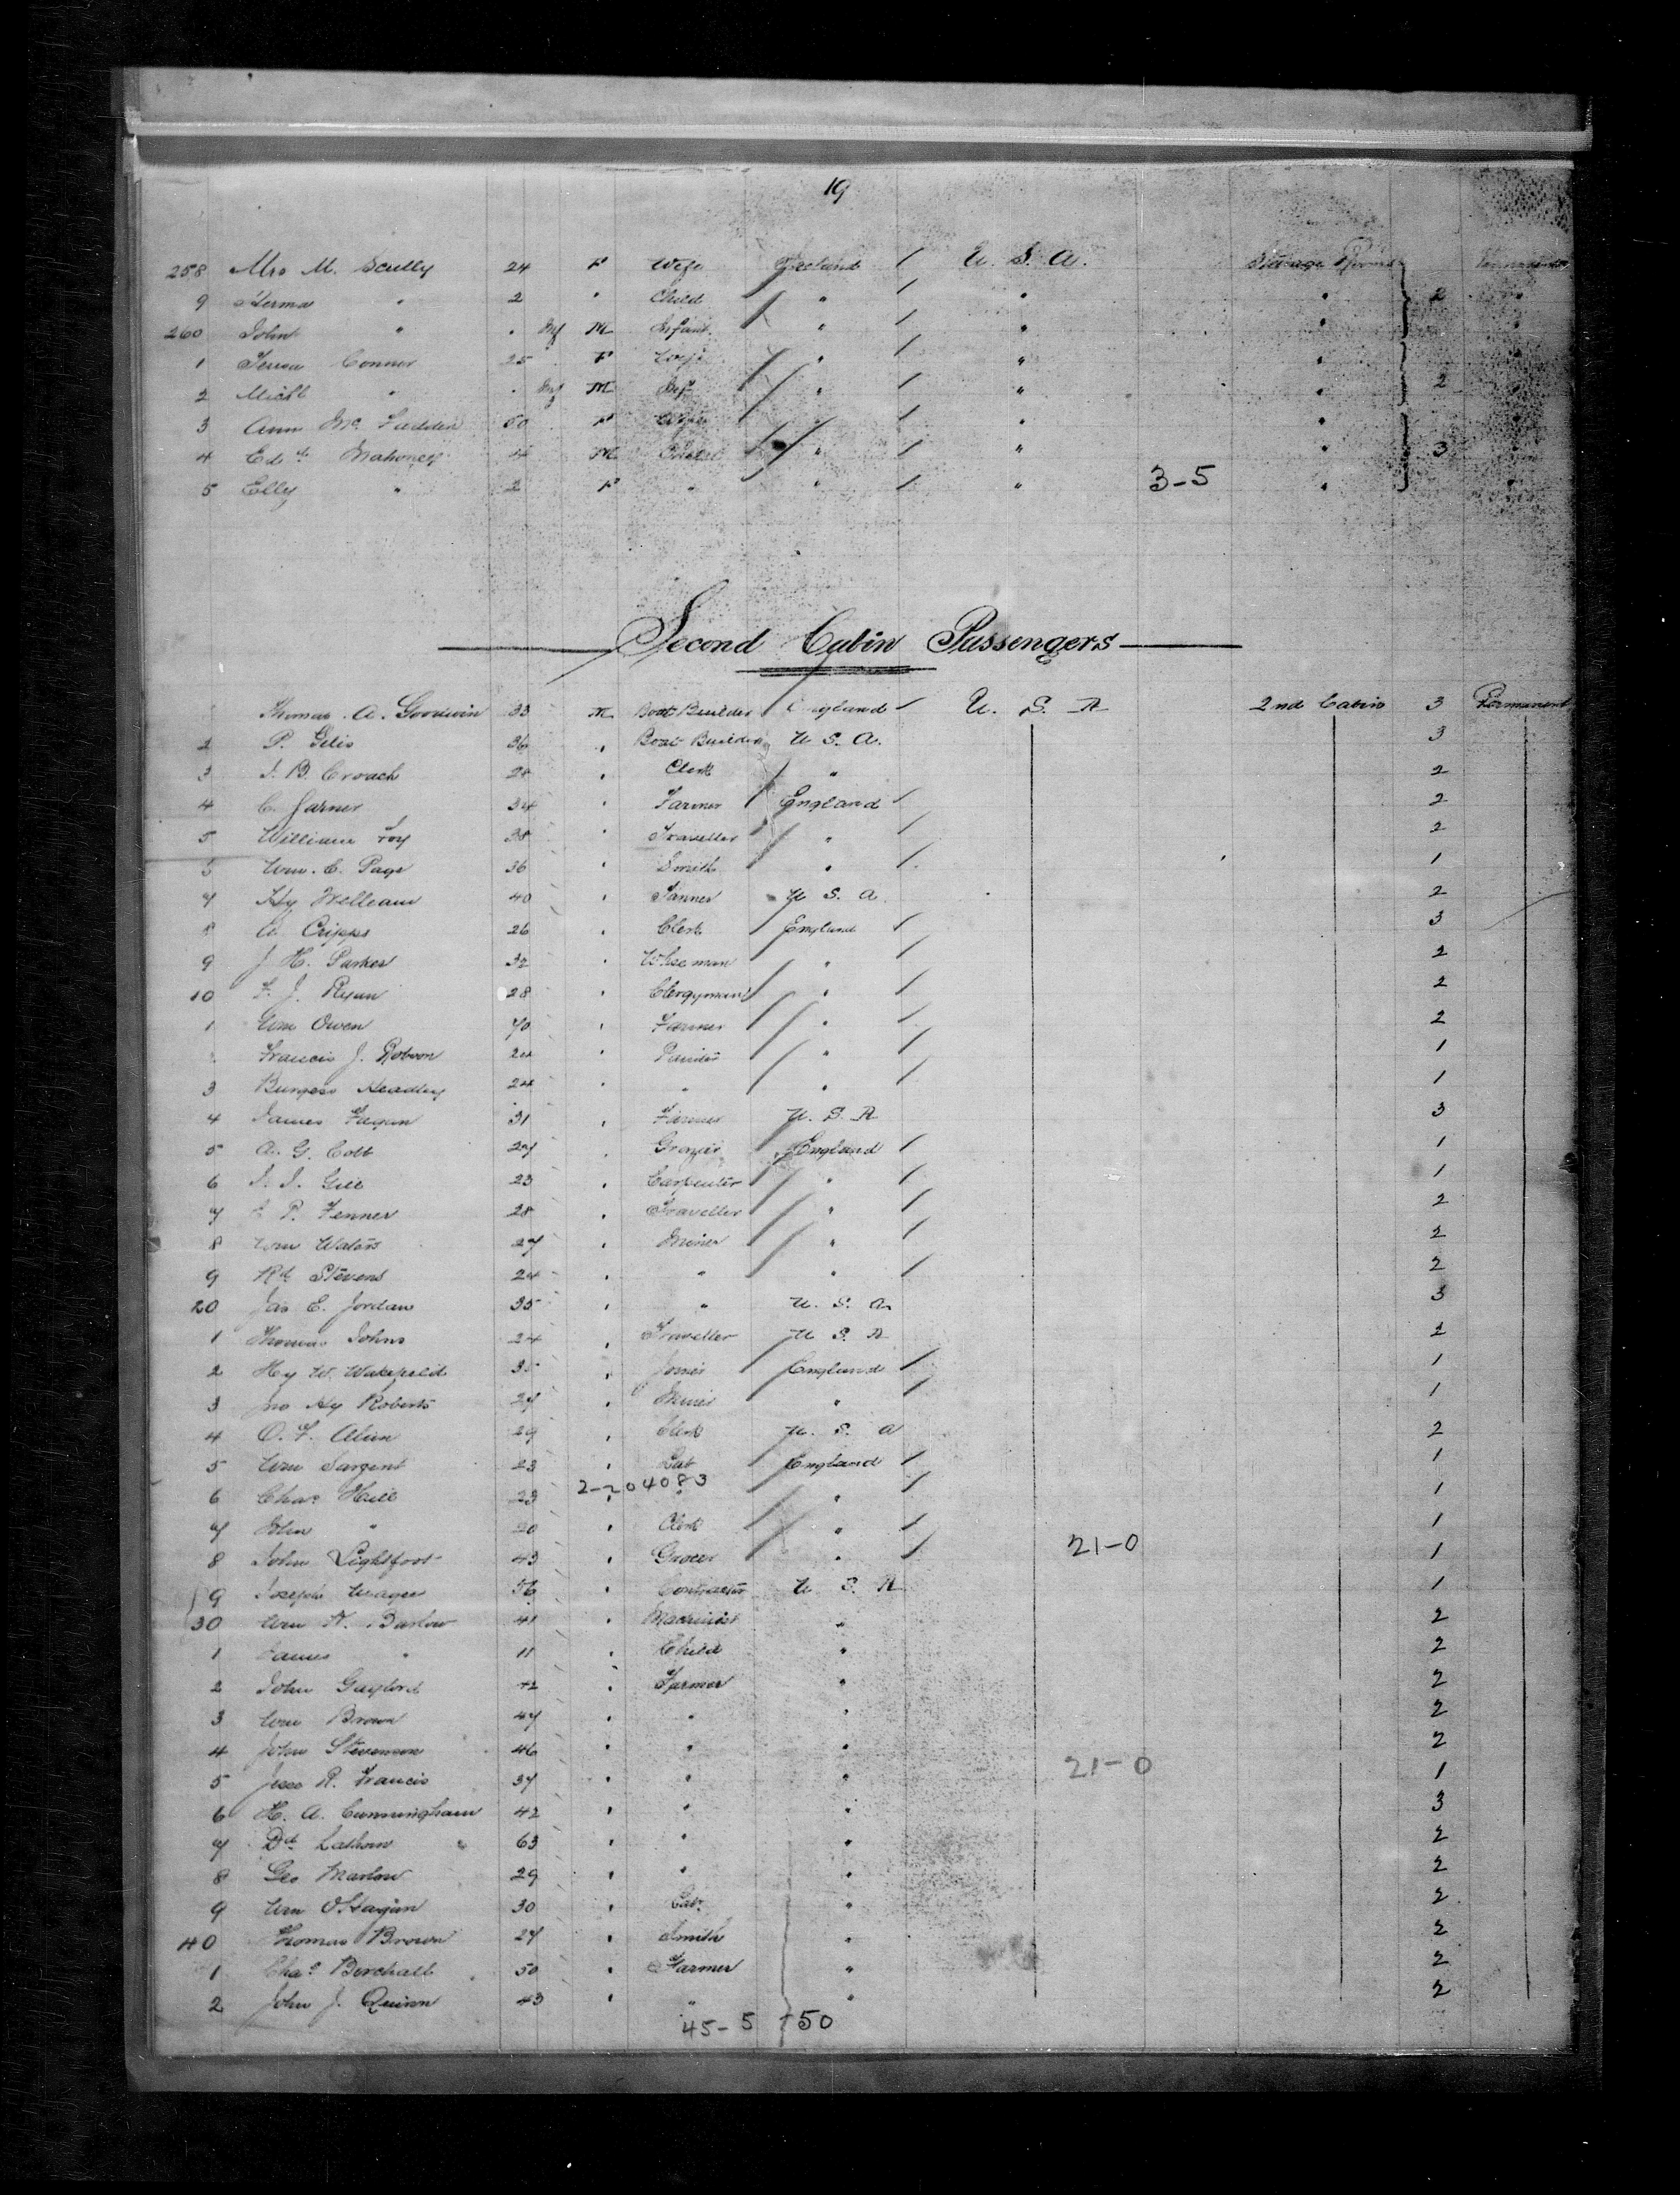 19
258 Mrs M. Scully 24 F Wife Ireland / U. S. A. Steerage
9 " 2 " Child " / " " 2 "
260 John " . Inf M Infant " / " " "
1 Connor 25 F Wife " / " " "
2 Michl " . Inf M Inf " / " " 2 "
3 Ann McFadden 60 F Wife " / " " "
4 Edd Mahoney 4 M Child " / " " 3 "
5 Elly " 2 F " " / " 3-5 " "
Second Cabin Passengers
Thomas A. Goodwin 33 M Boat Builder England / U. S. A 2nd Cabin 3 Permanent
2 P. 36 " Boat Builder U. S. A. 3
3 B. Crouch 28 " Clerk " 2
4 C. 34 " Farmer England / 2
5 William Foy 38 " Traveller " / 2
Wm. C. Page 36 " Smith " / 1
7 Hy 40 " U. S. A. 2
8 Cripps 26 " Clerk England / 3
9 J. H. Parker 32 " Whseman " / 2
10 F. J. Ryan 28 " Clergyman " / 2
1 Wm Owen 70 " Farmer " / 2
Francis J. Robson 24 " " / 1
3 Burgess Headley 24 " " " / 1
4 James Fagan 31 " Farmer U. S. A 3
5 A. G. Colt 27 " Grazier England / 1
6 Gill 23 " Carpenter " / 1
7 P. Fenner 28 " Traveller " / 2
8 Wm Waters 27 " Miner " / 2
9 Rd Stevens 24 " " " / 2
20 Jas E. Jordan 35 " " U. S. A 3
1 Thomas Johns 24 " Traveller U. S. A 2
2 Hy W. Wakefield 35 " Joiner England / 1
3 Jno Hy Roberts 27 " Miner " / 1
4 O. F. 29 " Clerk U. S. A 2
5 Wm Sargent 23 " Lab England / 1
2-204083
6 Chas Hill 23 " " " / 1
7 John " 20 " Clerk " / 1
8 John Lightfoot 43 " Grocer " / 21-0 1
9 Joseph 56 " Contractor U. S. A 1
30 Wm H. Barlow 41 " Machinist " 2
1 James " 11 " Child " 2
2 John Gaylord 42 " Farmer " 2
3 Wm Brown 47 " " " 2
4 John Stevenson 46 " " " 2
5 Jesse R. Francis 37 " " " 21-0 1
6 H. A. Cunningham 42 " " " 3
7 Dd 63 " " " 2
8 Geo Marlow 29 " " " 2
9 Wm O'Hagan 30 " Lab. " 2
40 Thomas Brown 27 " Smith " 2
1 Chas Birchall 50 " Farmer " 2
2 John J. Quinn 43 " " " 2
45-5 50